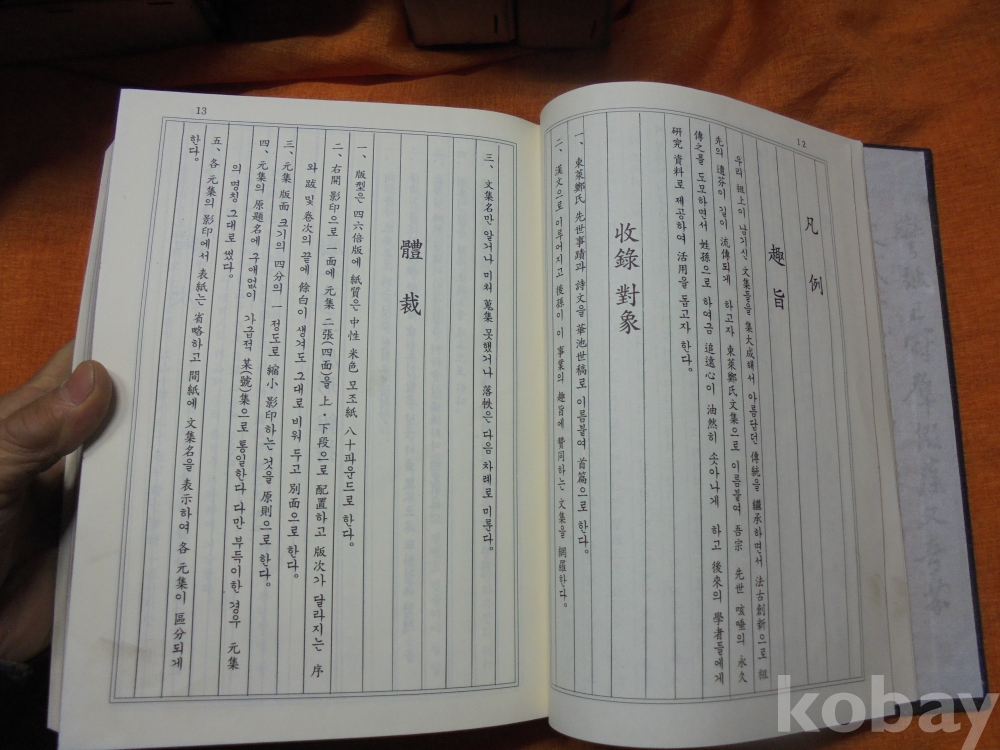 12
凡例
趣旨
우리 祖上이 남기신 文集들을 集大成해서 아름답던 傳統을 繼承하면서 法古創新으로 祖
先의 遺芬이 길이 流傳되게 하고자 東萊鄭氏文集으로 이름붙여 吾宗 先世 咳唾의 永久
傳之를 도모하면서 姓孫으로 하여금 追遠心이 油然히 솟아나게 하고 後來의 學者들에게
硏究 資料로 제공하여 活用을 돕고자 한다。
收錄 對象
一、東萊鄭氏 先世事蹟과 詩文을 華池世稿로 이름붙여 首篇으로 한다。
二、漢文으로 이루어지고 後孫이 이 事業의 趣旨에 贊同하는 文集을 網羅한다。
13
三、文集名만 알거나 미처 蒐集 못했거나 落帙은 다음 차례로 미룬다。
體裁
一、版型은 四六倍版에 紙質은 中性 米色 모조紙 八十파운드로 한다。
二、右開 影印으로 一面에 元集 二張(四面)을 上・下段으로 配置하고 版次가 달라지는 序
와 跋 및 卷次의 끝에 餘白이 생겨도 그대로 비워 두고 別面으로 한다。
三、元集 版面 크기의 四分의 一 정도로 縮小 影印하는 것을 原則으로 한다。
四、元集의 原題名에 구애없이 가급적 某(號)集으로 통일한다 다만 부득이한 경우 元集
의 명칭 그대로 썼다。
五、各 元集의 影印에서 表紙는 省略하고 間紙에 文集名을 表示하여 各 元集이 區分되게
한다。
kobay